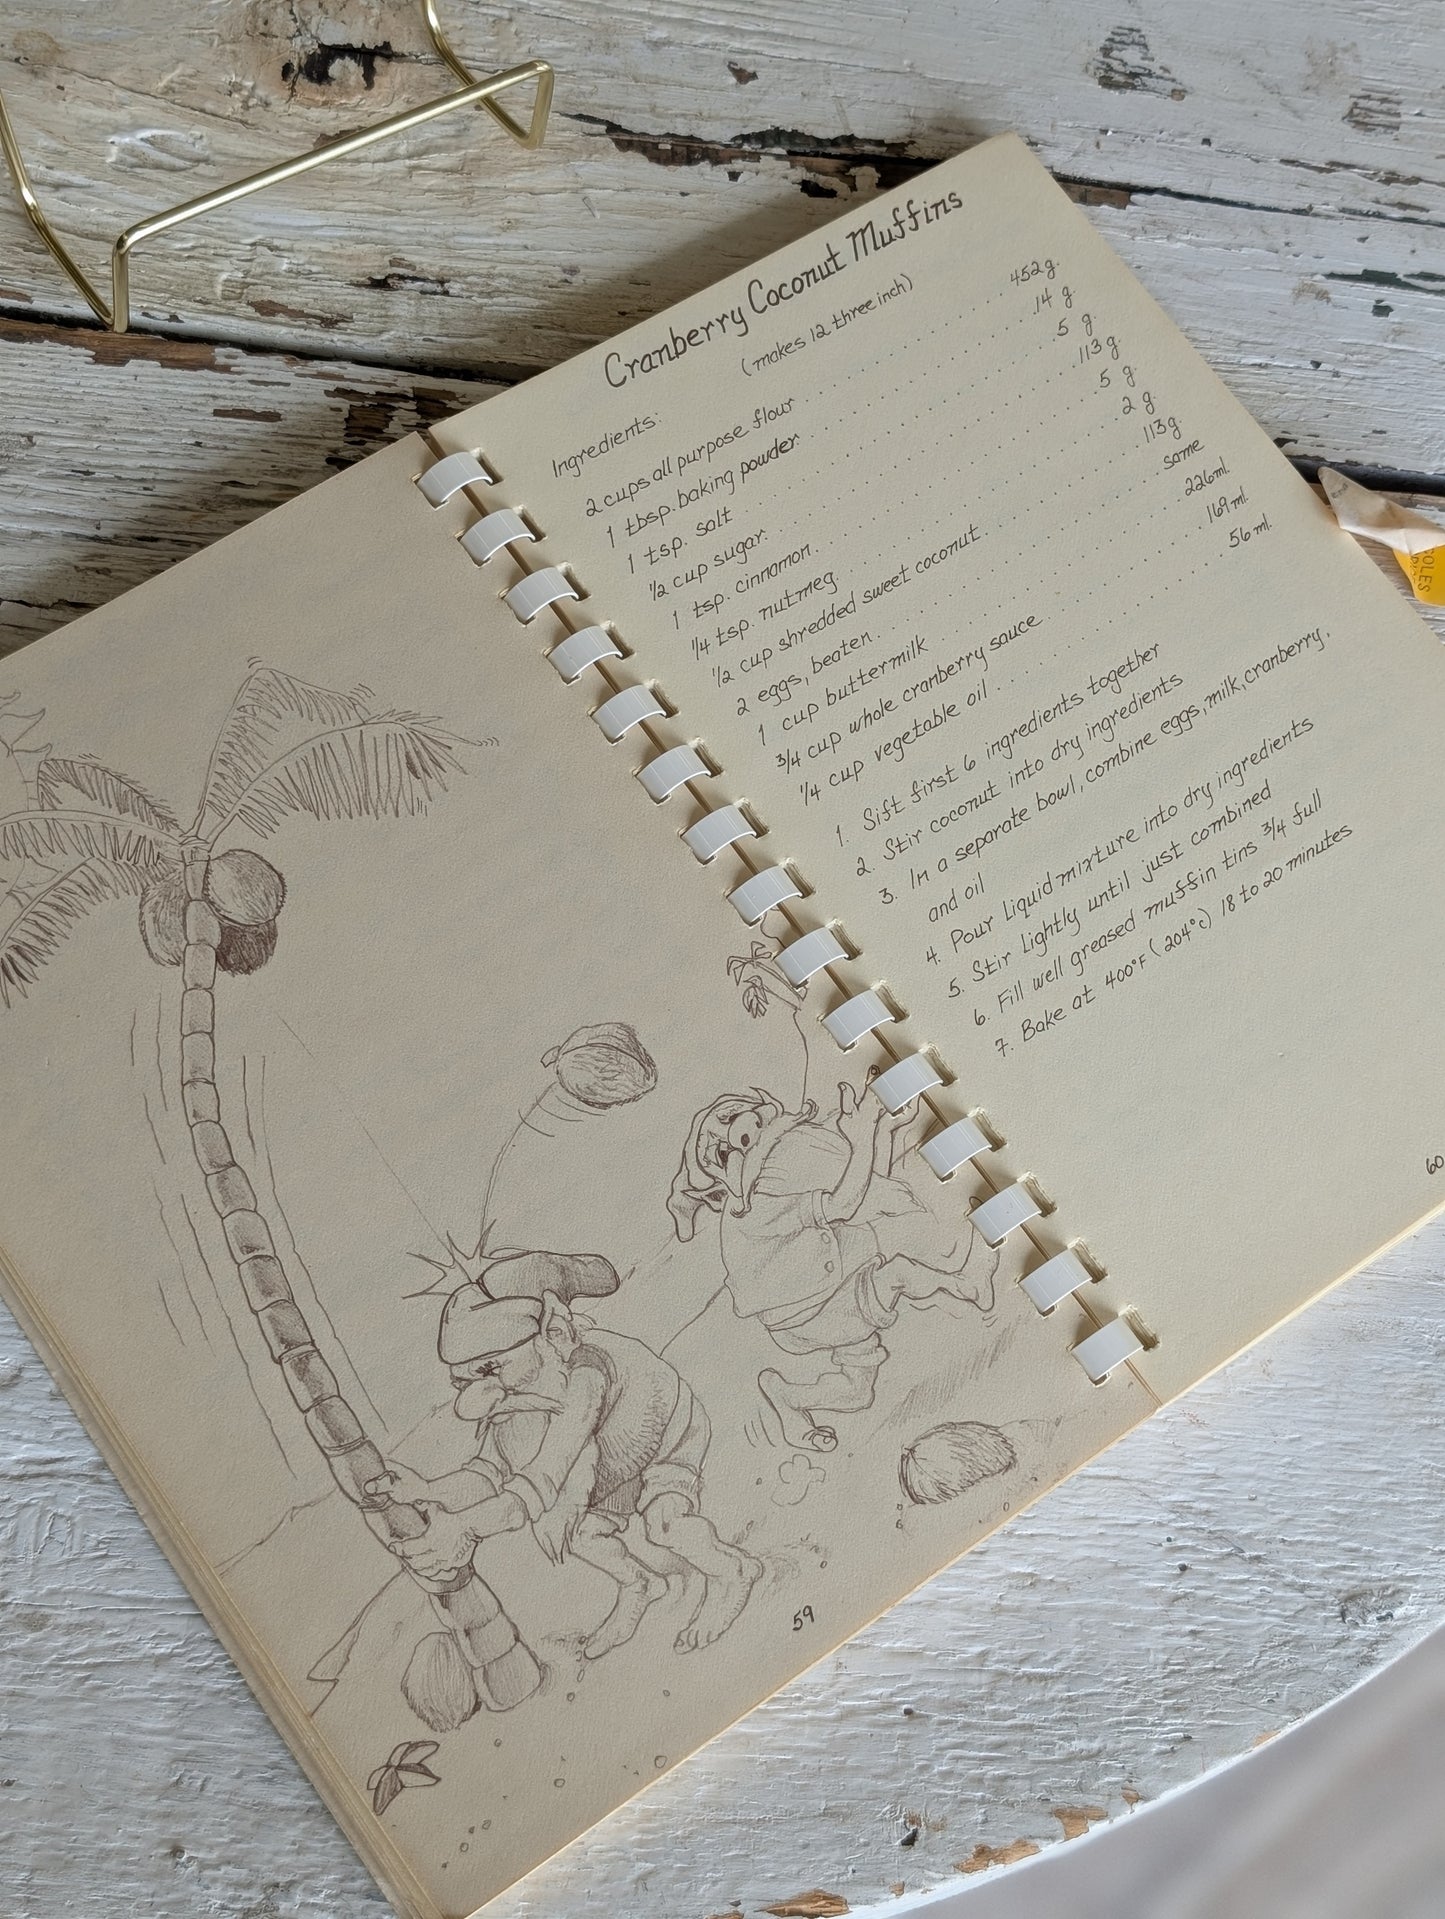 Cranberry Coconut Muffins
(makes 12 three inch)
Ingredients:
2 cups all purpose flour . . . . . . . . . . 452 g.
1 tbsp. baking powder . . . . . . . . . . 14 g
1 tsp. salt . . . . . . . . . . 5 g.
1/2 cup sugar . . . . . . . . . . 113 g.
1 tsp. cinnamon . . . . . . . . . . 5 g.
1/4 tsp. nutmeg . . . . . . . . . . 2 g.
1/2 cup shredded sweet coconut . . . . . . . . . . 113 g.
2 eggs, beaten . . . . . . . . . . same
1 cup buttermilk . . . . . . . . . . 226 ml.
3/4 cup whole cranberry sauce . . . . . . . . . . 169 ml.
1/4 cup vegetable oil . . . . . . . . . . 56 ml.
1. Sift first 6 ingredients together
2. Stir coconut into dry ingredients
3. In a separate bowl, combine eggs, milk, cranberry,
and oil
4. Pour liquid mixture into dry ingredients
5. Stir lightly until just combined
6. Fill well greased muffin tins 3/4 full
7. Bake at 400°F (204°C) 18 to 20 minutes
59
60